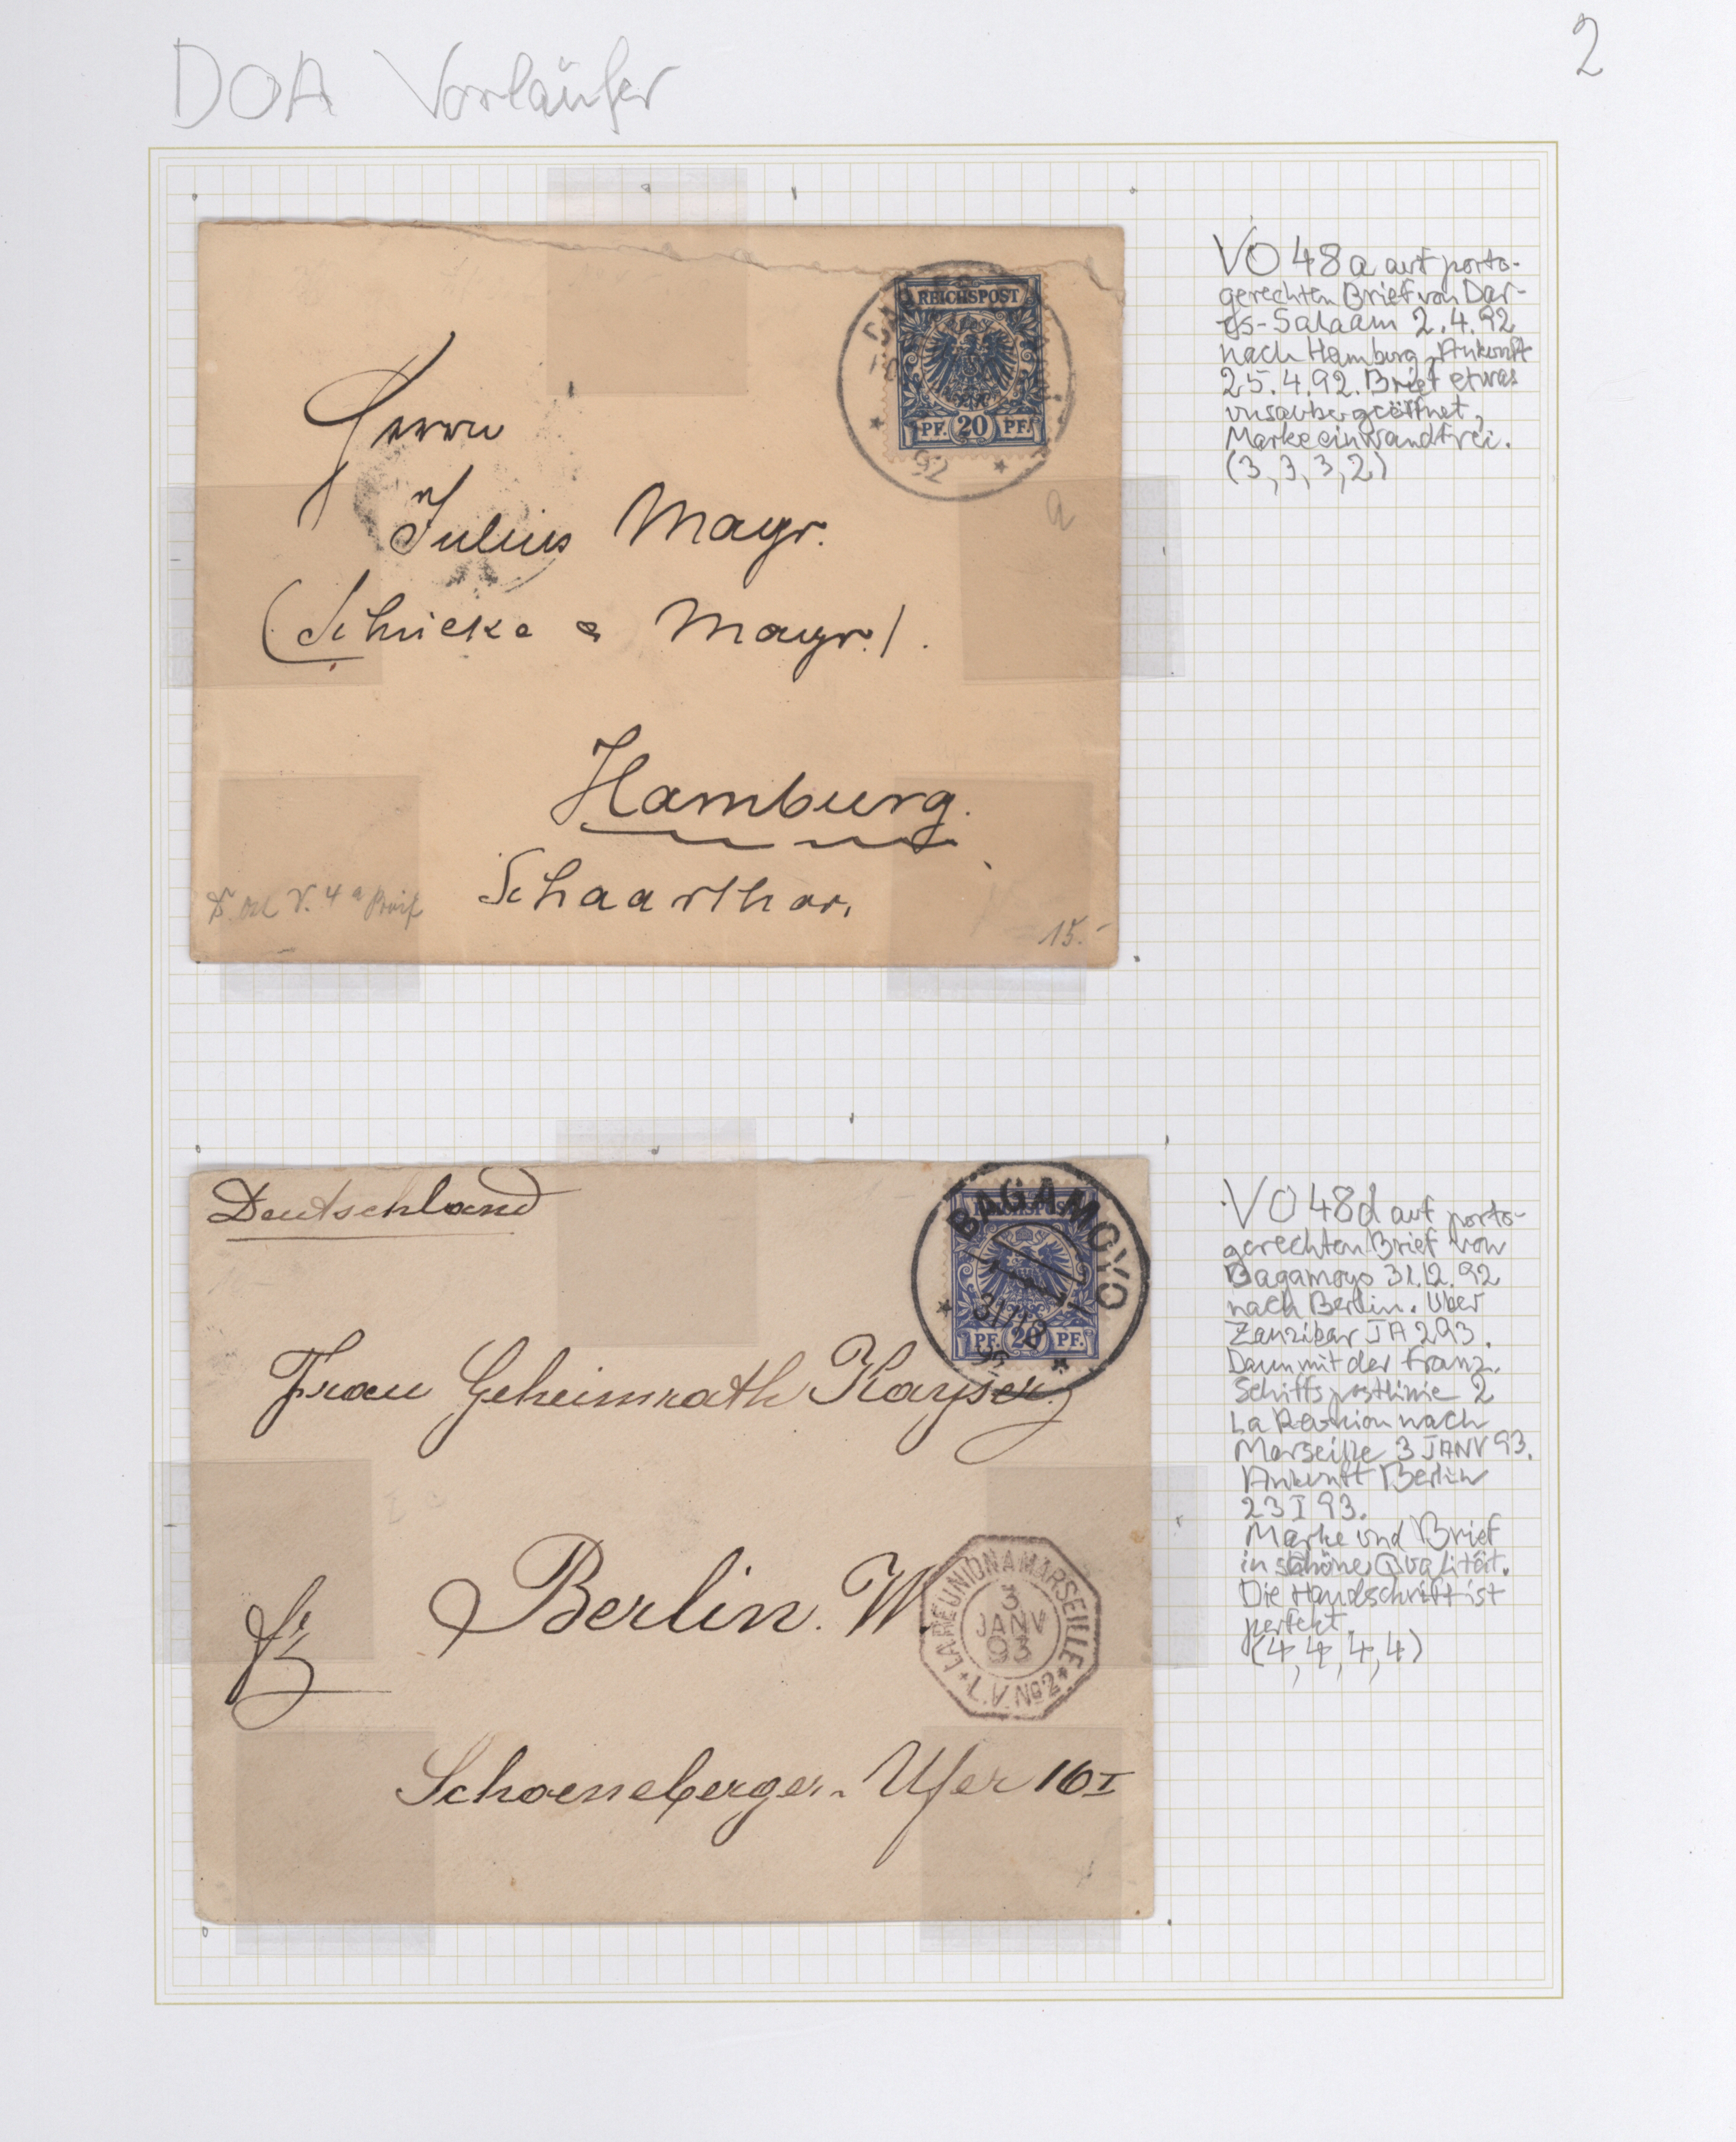 DOA Vorläufer
2
REICHSPOST
PF. 20 PF.
92
Herrn
Julius Mayr.
(Schicke & Mayr.).
Hamburg.
Schaarthor.
15.-
a
VO 48a auf porto-
gerechten Brief von Dar-
es-Salaam 2.4.92
nach Hamburg, Ankunft
25.4.92. Brief etwas
unsauber geöffnet,
Marke einwandfrei.
(3, 3, 3, 2)
Deutschland
BAGAMOYO
REICHSPOST
31/12
92
PF. 20 PF.
Frau Geheimrath Kayser
Berlin. W.
LA REUNION A MARSEILLE
3
JANV
93
L.V. No 2
Schoeneberger-Ufer 16 I
VO 48d auf porto-
gerechten Brief von
Bagamoyo 31.12.92
nach Berlin. Über
Zanzibar JA 2 93.
Dann mit der franz.
Schiffspostlinie 2
La Reunion nach
Marseille 3 JANV 93.
Ankunft Berlin
23 I 93.
Marke und Brief
in schöner Qualität.
Die Handschrift ist
perfekt.
(4, 4, 4, 4)